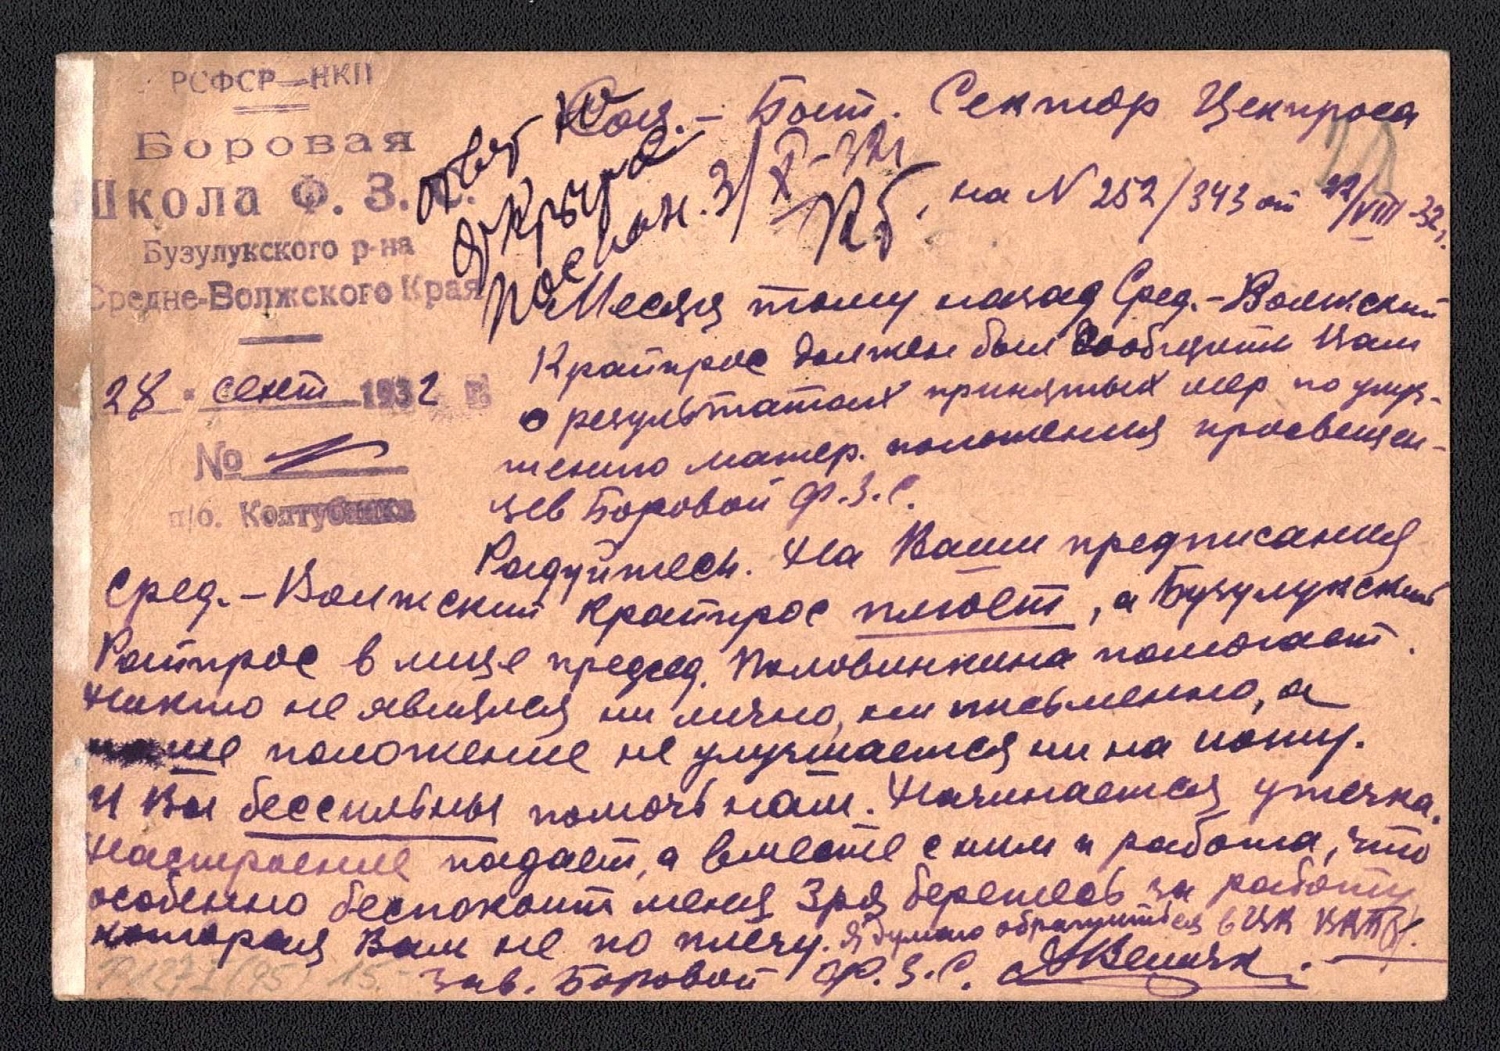 РСФСР—НКП
Боровая
Школа Ф. З. С.
Бузулукского р-на
Средне-Волжского Края
28 " сент 1932 г.
№
п/о. Колтубанка
ответ
открыткой
послан. 3/X-32г
Соц.-Быт. Сектор Цекпроса
на № 252/343 от 22/VIII-32г.
Месяц тому назад Сред.-Волжский
Крайпрос должен был сообщить Вам
о результатах принятых мер по улуч-
шению матер. положения просвещен-
цев Боровой Ф.З.С.
Радуйтесь. На Ваши предписания
Сред.-Волжский Крайпрос плюет, а Бузулукский
Райпрос в лице председ. Половинкина помогает.
Никто не явился ни лично, ни письменно, а
наше положение не улучшается ни на йоту.
И Вы бессильны помочь нам. Начинается утечка.
Настроение падает, а вместе с ним и работа, что
особенно беспокоит меня. Зря беретесь за работу,
которая Вам не по плечу. Я думаю обратиться в ЦК ВКП(б).
Зав. Боровой Ф.З.С.
P1277/(45) 15.-